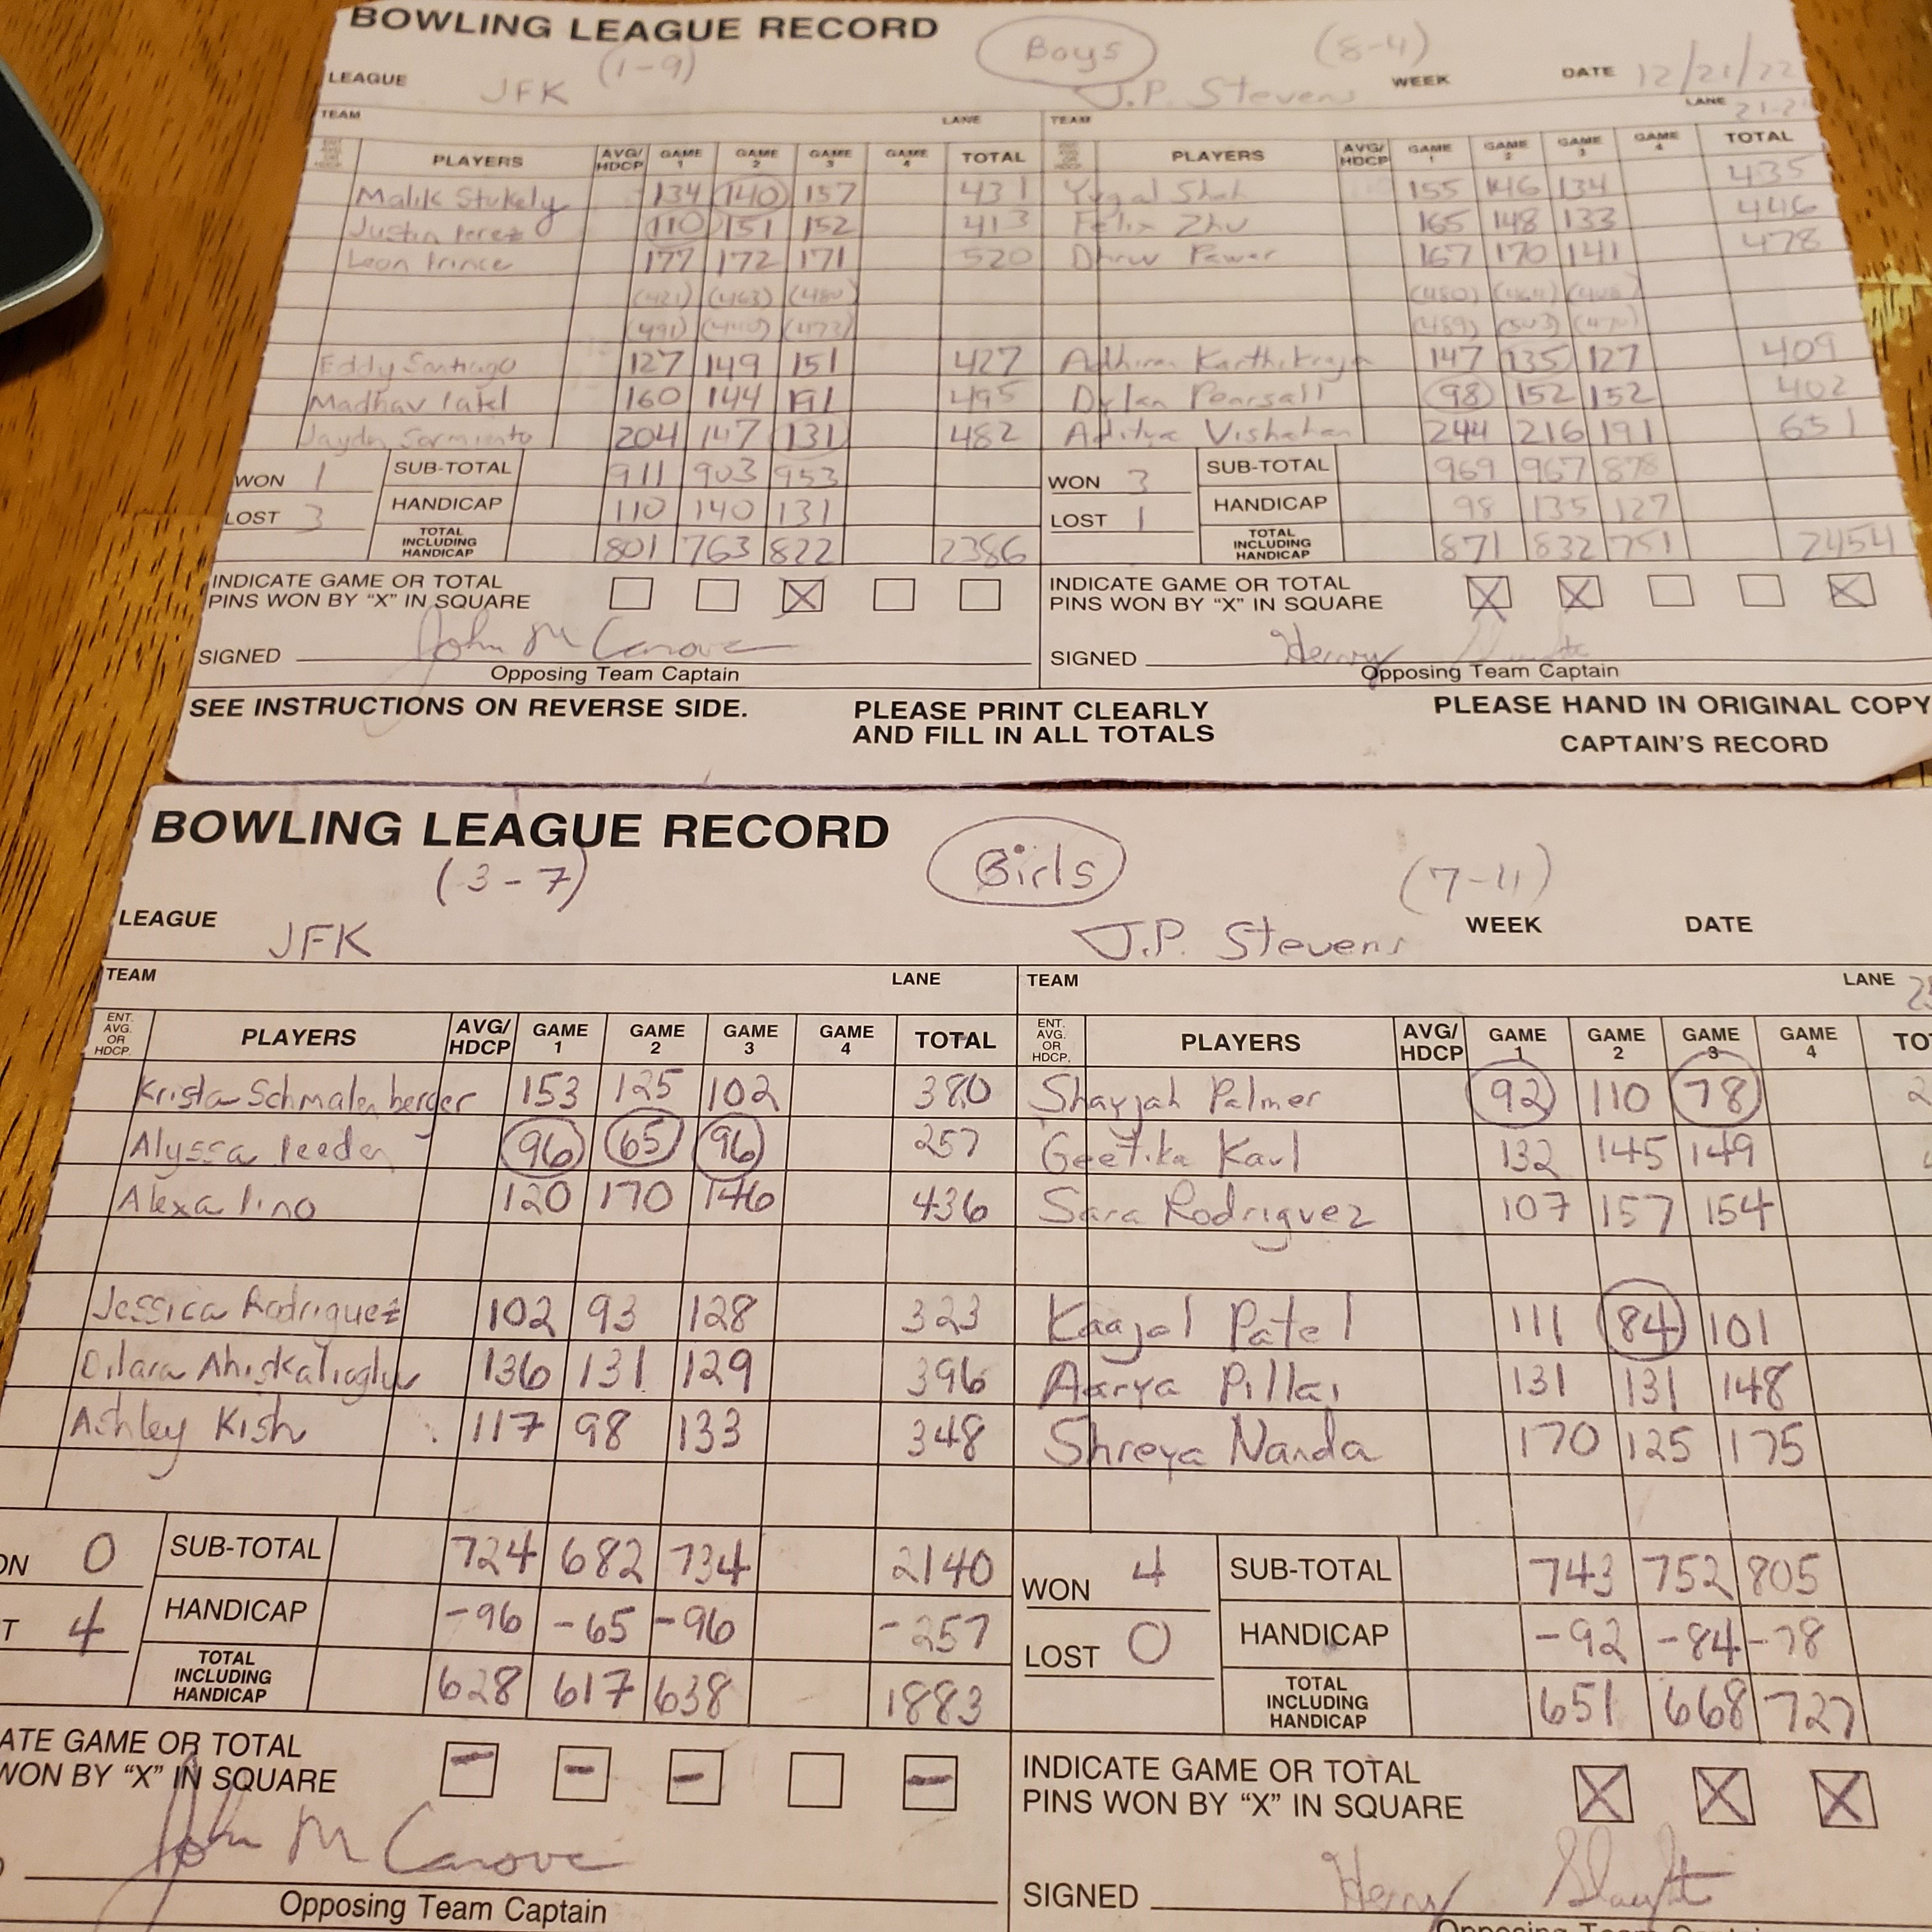 BOWLING LEAGUE RECORD Boys
(1-9) (8-4)
LEAGUE JFK J.P. Stevens WEEK DATE 12/21/22
TEAM LANE TEAM LANE
PLAYERS AVG/ HDCP GAME 1 GAME 2 GAME 3 GAME 4 TOTAL PLAYERS AVG/ HDCP GAME 1 GAME 2 GAME 3 GAME 4 TOTAL
Malik Stukely 134 140 157 431 Yugal Shah 155 146 134 435
Justin Perez 110 151 152 413 Felix Zhu 165 148 133 446
Leon Prince 177 172 171 520 Dhruv Pawar 167 170 141 478
(421) (463) (480)
(491) (440) (473) (489) (503) (470)
Eddy Santiago 127 149 151 427 Adhiran 147 135 127 409
Madhav Patel 160 144 191 495 Dylan Pearsall 98 152 152 402
Jaydn Sarmiento 204 147 131 482 Aditya 244 216 191 651
WON 1 SUB-TOTAL 911 903 953 WON 3 SUB-TOTAL 969 967 878
LOST 3 HANDICAP 110 140 131 LOST 1 HANDICAP 98 135 127
TOTAL INCLUDING HANDICAP 801 763 822 2386 TOTAL INCLUDING HANDICAP 871 832 751 2454
INDICATE GAME OR TOTAL X INDICATE GAME OR TOTAL X X X
PINS WON BY "X" IN SQUARE PINS WON BY "X" IN SQUARE
SIGNED John M Canova SIGNED Henry
Opposing Team Captain Opposing Team Captain
SEE INSTRUCTIONS ON REVERSE SIDE. PLEASE PRINT CLEARLY PLEASE HAND IN ORIGINAL COPY
AND FILL IN ALL TOTALS CAPTAIN'S RECORD
BOWLING LEAGUE RECORD Girls
(3-7) (7-11)
LEAGUE JFK J.P. Stevens WEEK DATE
TEAM LANE TEAM LANE
ENT. AVG. OR HDCP. PLAYERS AVG/ HDCP GAME 1 GAME 2 GAME 3 GAME 4 TOTAL ENT. AVG. OR HDCP. PLAYERS AVG/ HDCP GAME 1 GAME 2 GAME 3 GAME 4 TO
Krista Schmalenberger 153 125 102 380 Shayjah Palmer 92 110 78
Alyssa Peeden 96 65 96 257 Geetika Kaul 132 145 149
Alexa Pino 120 170 146 436 Sara Rodriguez 107 157 154
Jessica Rodriguez 102 93 128 323 Kaajal Patel 111 84 101
Dilara Ahiskalioglu 136 131 129 396 Aarya Pillai 131 131 148
Ashley Kish 117 98 133 348 Shreya Nanda 170 125 175
ON 0 SUB-TOTAL 724 682 734 2140 WON 4 SUB-TOTAL 743 752 805
T 4 HANDICAP -96 -65 -96 -257 LOST 0 HANDICAP -92 -84 -78
TOTAL INCLUDING HANDICAP 628 617 638 1883 TOTAL INCLUDING HANDICAP 651 668 727
ATE GAME OR TOTAL - - - - INDICATE GAME OR TOTAL X X X
WON BY "X" IN SQUARE PINS WON BY "X" IN SQUARE
John M Canova SIGNED Henry
Opposing Team Captain Opposing Team Captain